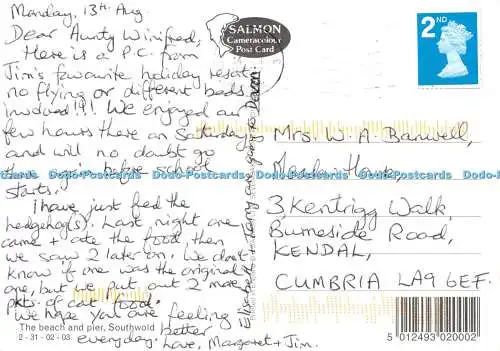 Monday, 13th Aug
Dear Aunty Winifred,
Here is a P.C. from
Jim's favourite holiday resort,
no flying or different beds
involved!!! We enjoyed our
few hours there on Saturday
and will no doubt go
again before school
starts.
I have just fed the
hedgehog(s). Last night one
came + ate the food, then
we saw 2 later on. We don't
know if one was the original
one, but we put out 2 more
pkts of cat food.
We hope you are feeling
better
everyday. Love, Margaret + Jim.
The beach and pier, Southwold
2 - 31 - 02 - 03
Elizabeth + are going to Devon
SALMON
Cameracolour
Post Card
2ND
Mrs. W. A. Banwell,
House,
3 Kentrigg Walk,
Burneside Road,
KENDAL,
CUMBRIA LA9 6EF.
5 012493 020002
Dodo-Postcards Dodo-Postcards Dodo-Postcards Dodo-Postcards Dodo-Postcards